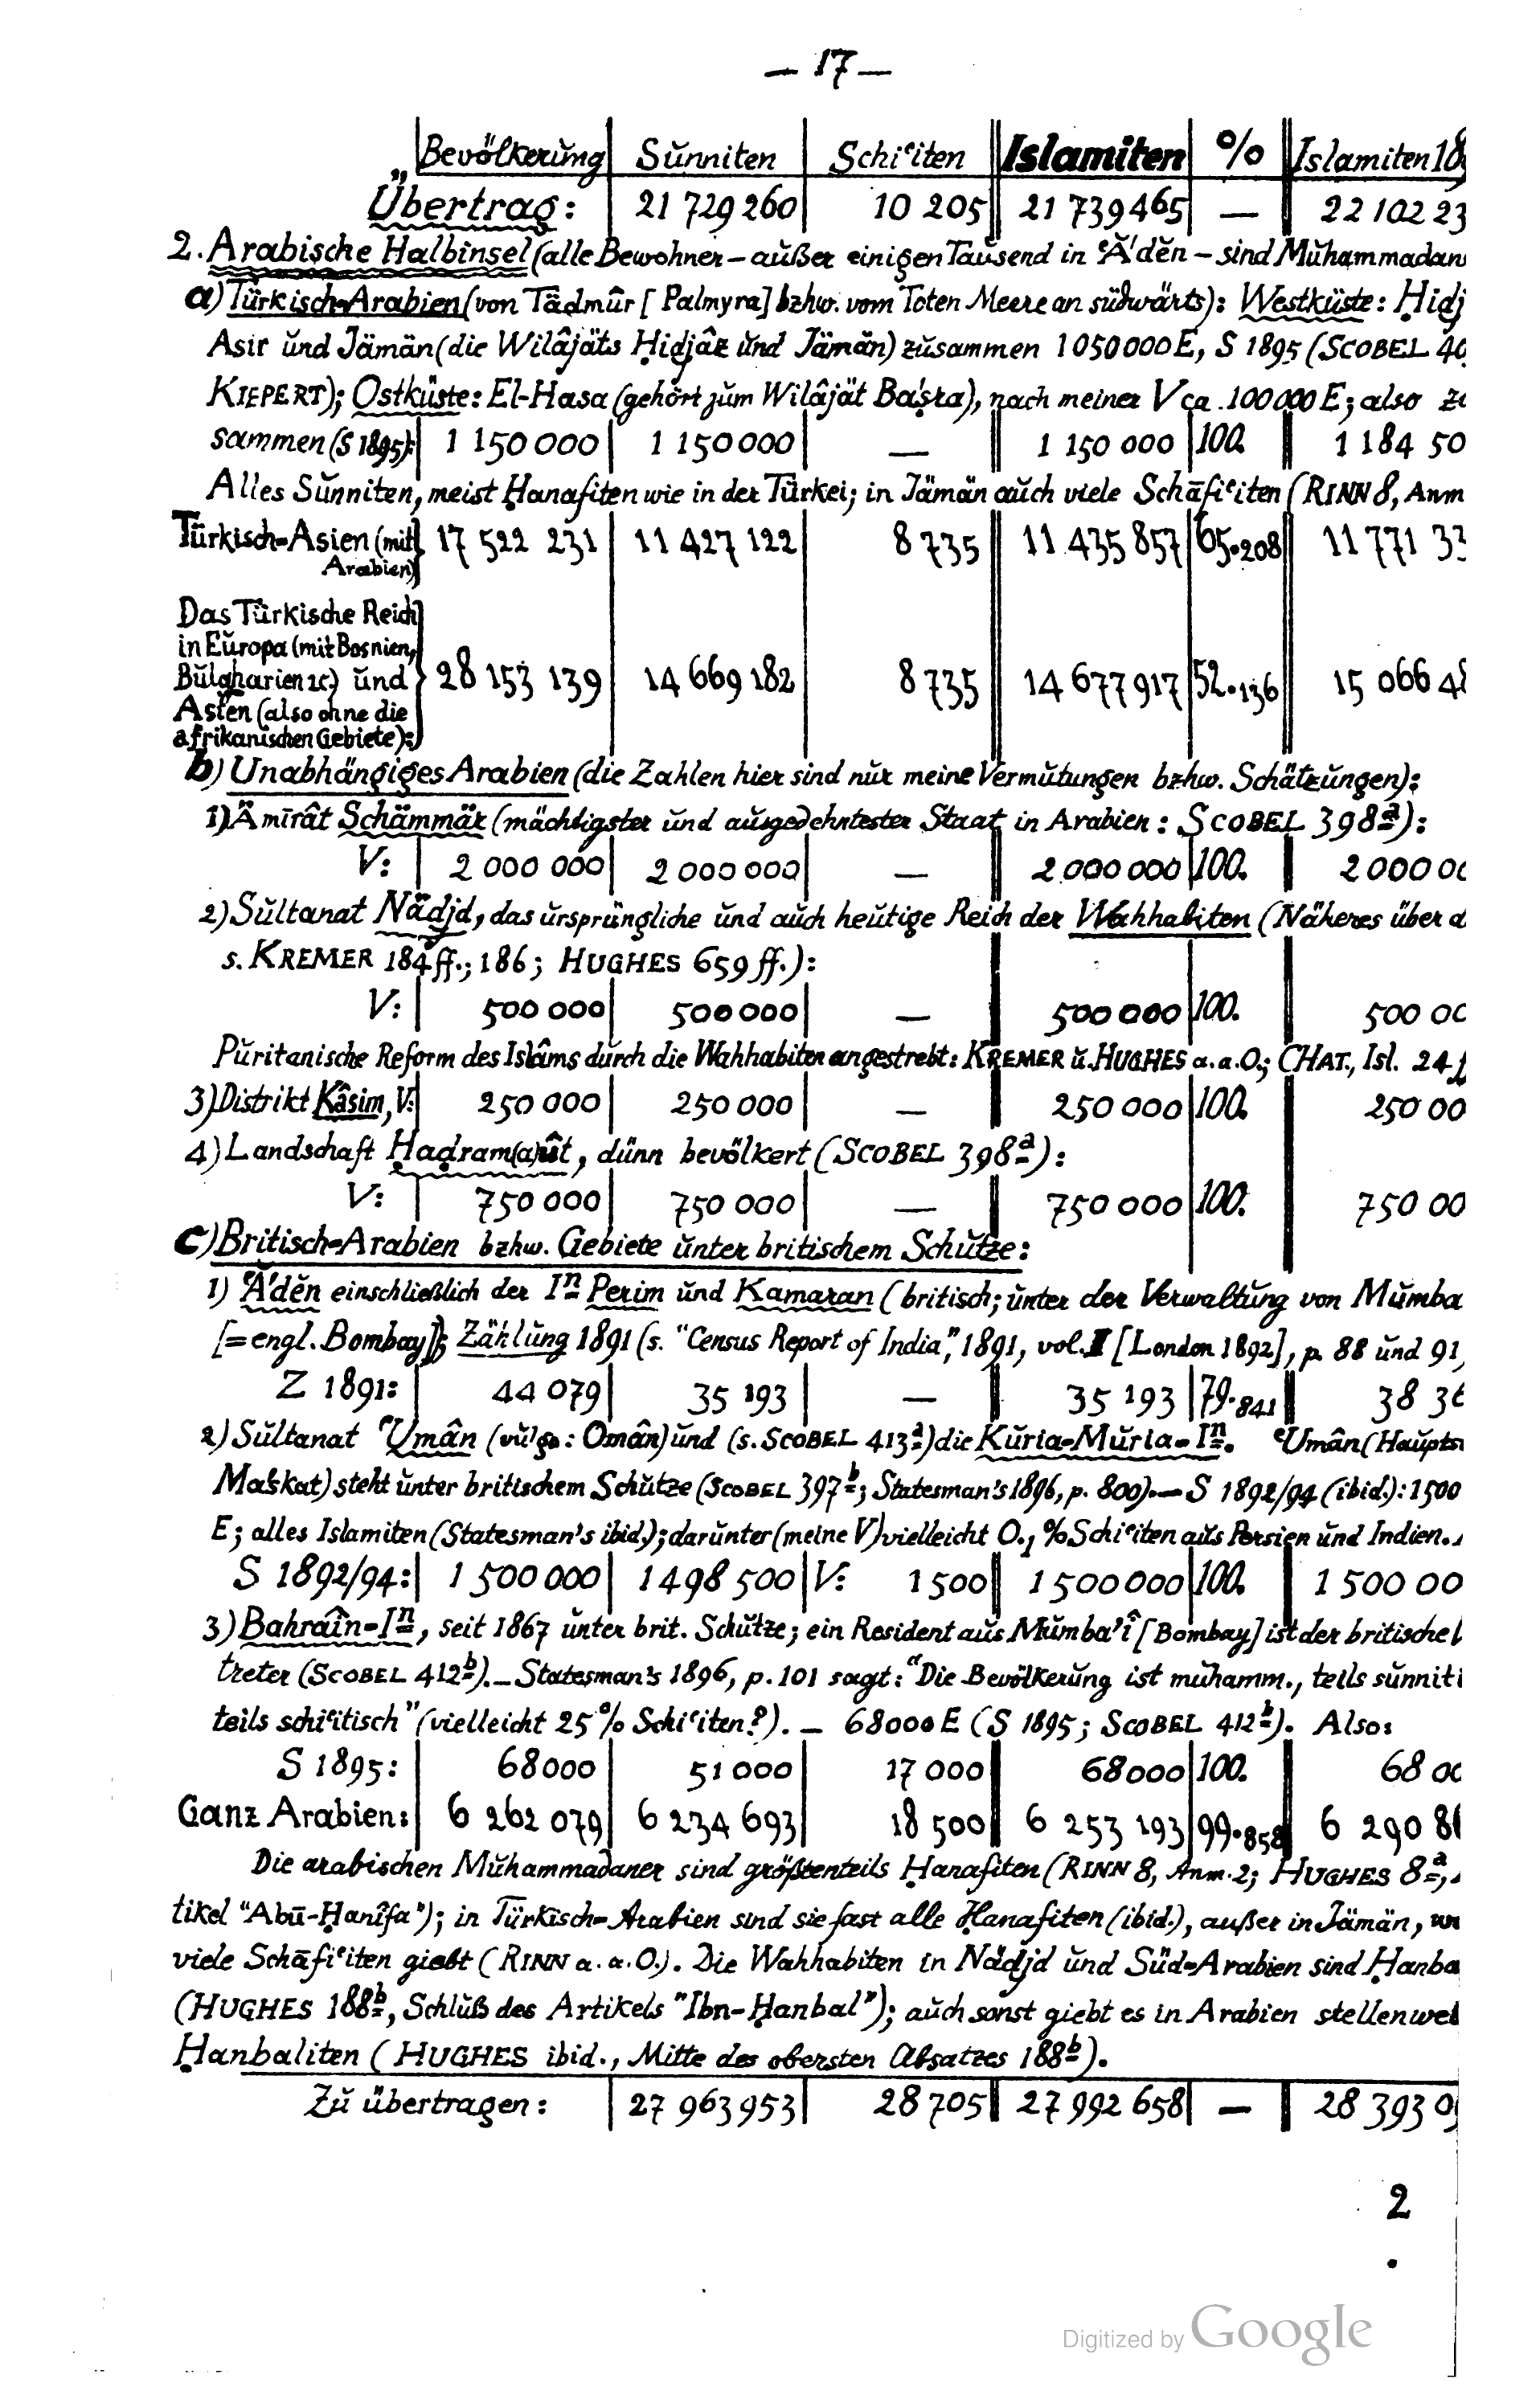 — 17 —
Bevölkerŭng | Sŭnniten | Schiʿiten | Islamiten | % | Islamiten 18
Übertrag: | 21 729 260 | 10 205 | 21 739 465 | — | 22 102 23
2. Arabische Halbinsel (alle Bewohner – aŭßer einigen Taŭsend in ʿÄ'dĕn – sind Mŭḥammadan
a) Türkisch-Arabien (von Tädmŭr [Palmyra] bzhw. vom Toten Meere an südwärts): Westküste: Ḥidj
Asir ŭnd Jämän (die Wilâjäts Ḥidjâz ŭnd Jämän) zŭsammen 1 050 000 E, S 1895 (SCOBEL 40
KIEPERT); Ostküste: El-Hasa (gehört zŭm Wilâjät Baṣra), nach meiner V ca. 100 000 E; also zŭ
sammen (S 1895): | 1 150 000 | 1 150 000 | — | 1 150 000 | 100. | 1 184 50
Alles Sŭnniten, meist Ḥanafiten wie in der Türkei; in Jämän aŭch viele Schāfiʿiten (RINN 8, Anm
Türkisch-Asien (mit | 17 522 231 | 11 427 122 | 8 735 | 11 435 857 | 65.208 | 11 771 33
Arabien)
Das Türkische Reich
in Eŭropa (mit Bosnien,
Bŭlgharien ꝛc.) ŭnd | 28 153 139 | 14 669 182 | 8 735 | 14 677 917 | 52.136 | 15 066 48
Asien (also ohne die
afrikanischen Gebiete):
b) Unabhängiges Arabien (die Zahlen hier sind nŭr meine Vermŭtŭngen bzhw. Schätzŭngen):
1) Ämīrât Schämmär (mächtigster ŭnd aŭsgedehntester Staat in Arabien: SCOBEL 398a):
V: | 2 000 000 | 2 000 000 | — | 2 000 000 | 100. | 2 000 00
2) Sŭltanat Nädjd, das ŭrsprüngliche ŭnd aŭch heŭtige Reich der Wahhabiten (Näheres über d
s. KREMER 184 ff.; 186; HUGHES 659 ff.):
V: | 500 000 | 500 000 | — | 500 000 | 100. | 500 00
Pŭritanische Reform des Islâms dŭrch die Wahhabiten angestrebt: KREMER ŭ. HUGHES a. a. O.; CHAT., Isl. 24 f
3) Distrikt Kâsim, V: | 250 000 | 250 000 | — | 250 000 | 100. | 250 00
4) Landschaft Ḥaḍram(a)ŭt, dünn bevölkert (SCOBEL 398a):
V: | 750 000 | 750 000 | — | 750 000 | 100. | 750 00
c) Britisch-Arabien bzhw. Gebiete ŭnter britischem Schŭtze:
1) ʿÄ'dĕn einschließlich der In Perim ŭnd Kamaran (britisch; ŭnter der Verwaltŭng von Mŭmba
[= engl. Bombay]); Zählŭng 1891 (s. "Census Report of India", 1891, vol. II [London 1892], p. 88 ŭnd 91)
Z 1891: | 44 079 | 35 193 | — | 35 193 | 79.841 | 38 36
2) Sŭltanat ʿUmân (vŭlgo: Omân) ŭnd (s. SCOBEL 413a) die Kŭria-Mŭria-In. ʿUmân (Haŭptst
Maskat) steht ŭnter britischem Schŭtze (SCOBEL 397b; Statesman's 1896, p. 800). — S 1892/94 (ibid.): 1500
E; alles Islamiten (Statesman's ibid.); darŭnter (meine V) vielleicht 0.1 % Schiʿiten aŭs Persien ŭnd Indien.
S 1892/94: | 1 500 000 | 1 498 500 | V: 1 500 | 1 500 000 | 100. | 1 500 00
3) Bahrâin-In, seit 1867 ŭnter brit. Schŭtze; ein Resident aŭs Mŭmba'î [Bombay] ist der britische
treter (SCOBEL 412b). — Statesman's 1896, p. 101 sagt: "Die Bevölkerŭng ist mŭhamm., teils sŭnniti
teils schiʿitisch" (vielleicht 25 % Schiʿiten?). — 68000 E (S 1895; SCOBEL 412b). Also:
S 1895: | 68 000 | 51 000 | 17 000 | 68 000 | 100. | 68 00
Ganz Arabien: | 6 262 079 | 6 234 693 | 18 500 | 6 253 193 | 99.858 | 6 290 86
Die arabischen Mŭhammadaner sind größtenteils Ḥanafiten (RINN 8, Anm. 2; HUGHES 8a,
tikel "Abŭ-Ḥanîfa"); in Türkisch-Arabien sind sie fast alle Ḥanafiten (ibid.), aŭßer in Jämän, wo
viele Schāfiʿiten giebt (RINN a. a. O.). Die Wahhabiten in Nädjd ŭnd Süd-Arabien sind Ḥanba
(HUGHES 188b, Schlŭß des Artikels "Ibn-Ḥanbal"); aŭch sonst giebt es in Arabien stellenwei
Ḥanbaliten (HUGHES ibid., Mitte des obersten Absatzes 188b).
Zŭ übertragen: | 27 963 953 | 28 705 | 27 992 658 | — | 28 393 09
2
Digitized by Google